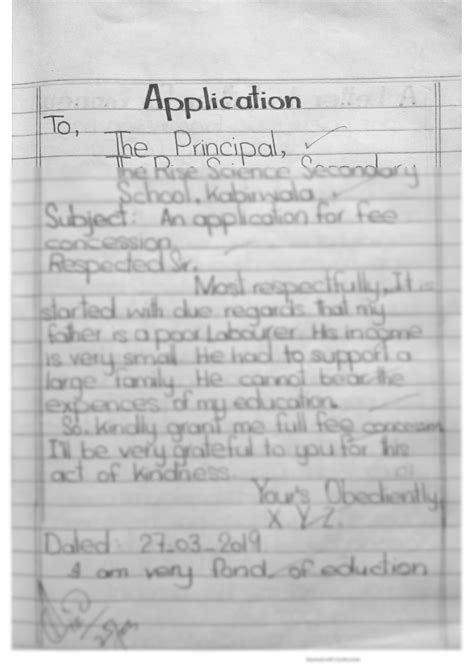 Application
To,
The Principal,
The Rise Science Secondary
School, Kabirwala.
Subject: An application for fee
concession.
Respected Sr.
Most respectfully, It is
started with due regards that my
father is a poor Labourer. His income
is very small. He had to support a
large family. He cannot bear the
expences of my education.
So, kindly grant me full fee concession
I'll be very grateful to you for this
act of kindness.
Your's Obediently,
X Y Z.
Dated: 27-03-2019
I am very fond of eduction